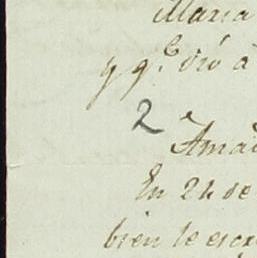 Maria
y q.e dió à
2
Amad
En 24 de
bien le escr